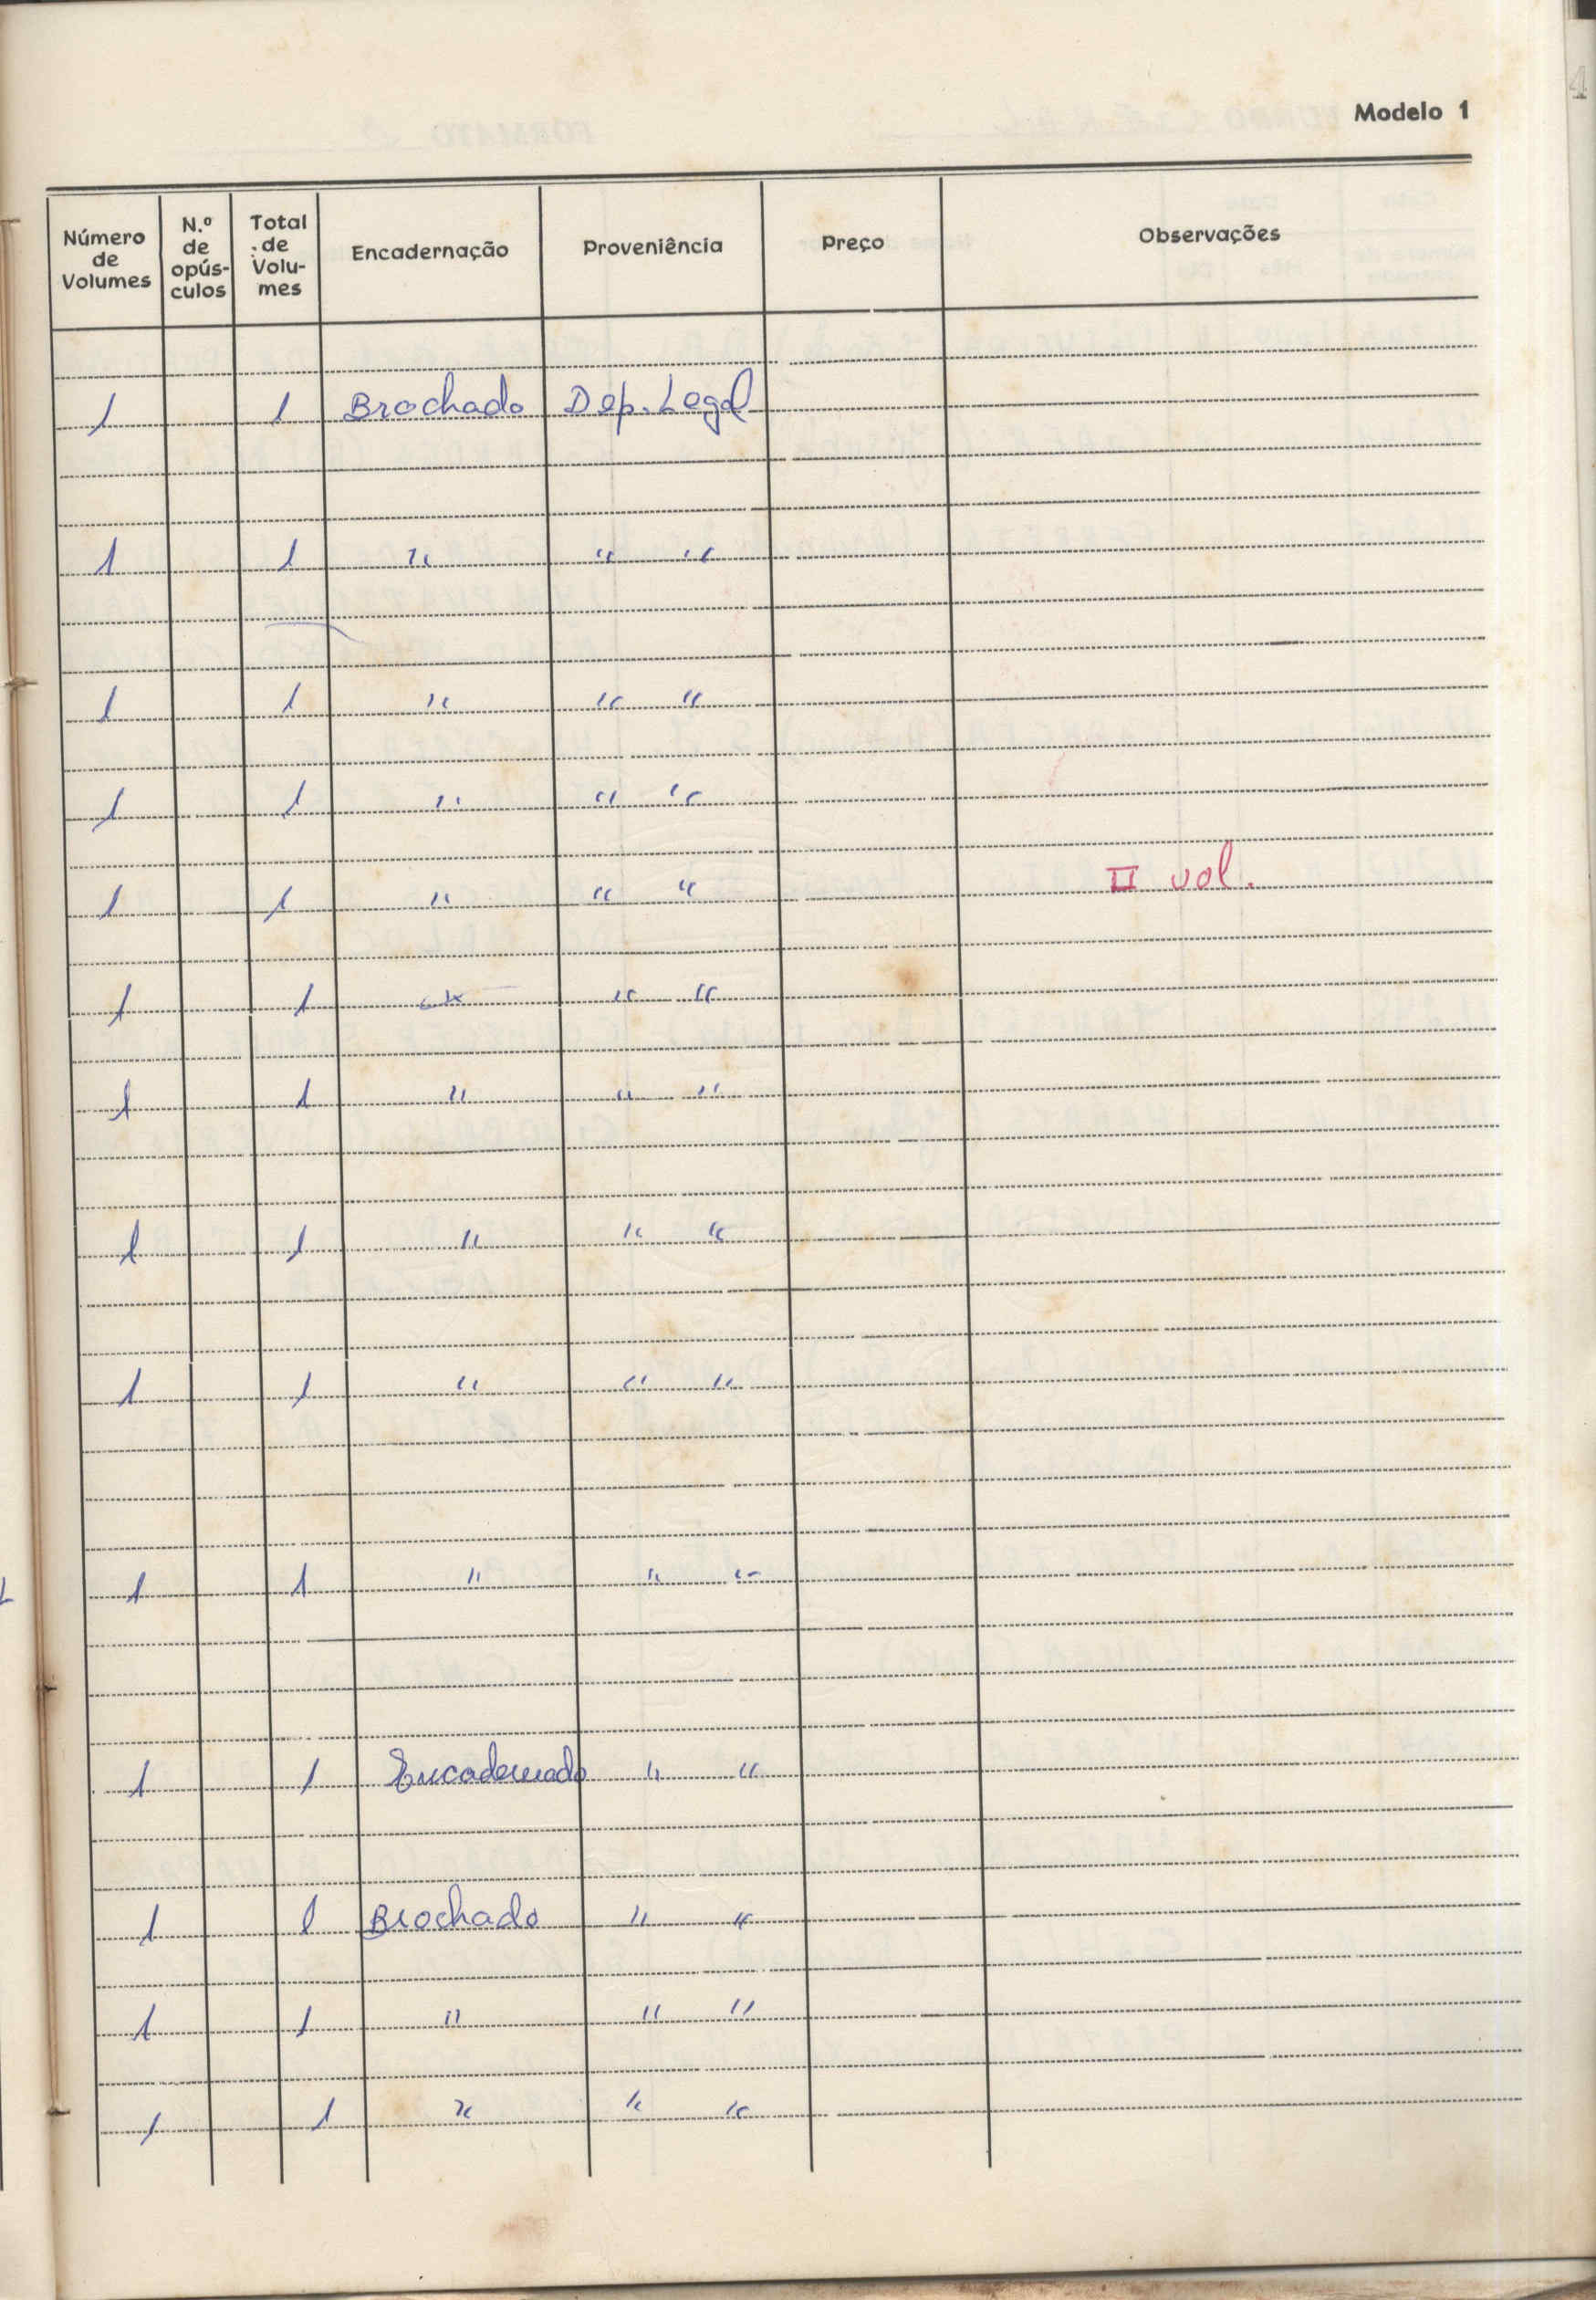 Modelo 1
Número de Volumes | N.º de opús-culos | Total de Volu-mes | Encadernação | Proveniência | Preço | Observações
1 | | 1 | Brochado | Dep. Legal
1 | | 1 | " | " "
1 | | 1 | " | " "
1 | | 1 | " | " "
1 | | 1 | " | " " | | II vol.
1 | | 1 | " | " "
1 | | 1 | " | " "
1 | | 1 | " | " "
1 | | 1 | " | " "
1 | | 1 | " | " "
1 | | 1 | Encadernado | " "
1 | | 1 | Brochado | " "
1 | | 1 | " | " "
1 | | 1 | " | " "